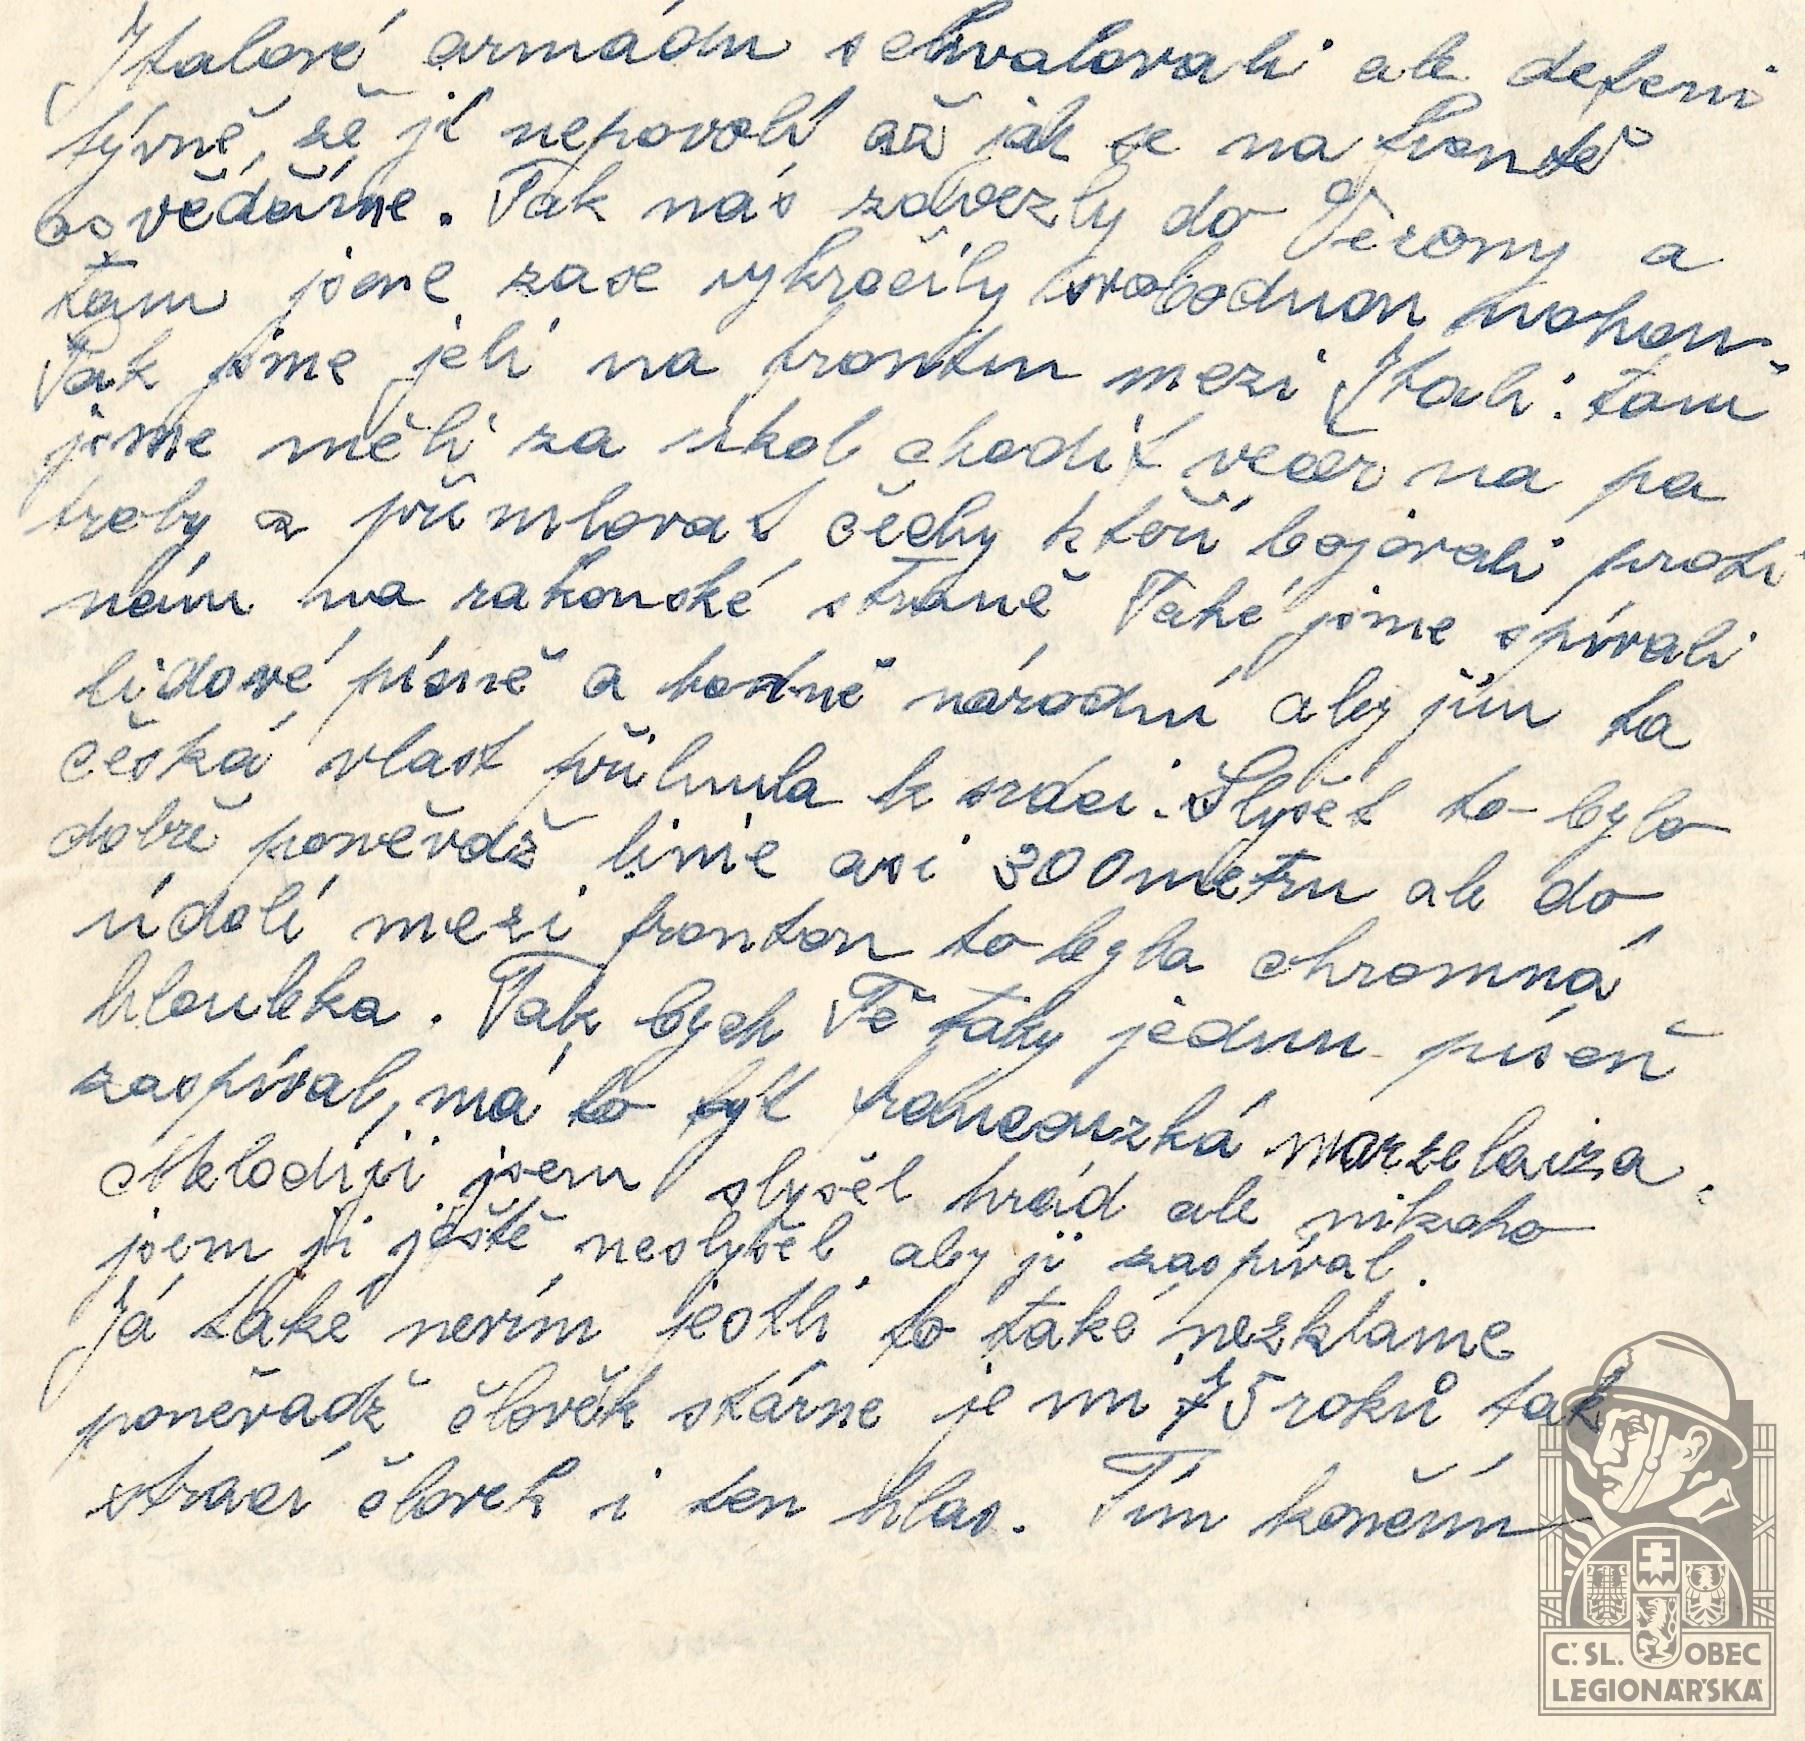 Italové armádu schvalovali ale defeni
tývně, že jí nepovolí až jak se na frontě
osvědčíme. Tak nás zavezly do Verony a
tam jsme zase vykročily svobodnou nohou.
Tak jsme jeli na frontu mezi Itali. tam
jsme měli za úkol chodit večer na pa
troly a přimlovat čechy kteří bojovali proti
nám na rakouské straně Také jsme spívali
lidové písně a hodně národní aby jim ta
česká vlast přilnula k srdci. Slyšet to bylo
dobře poněvdž linie asi 300metru ale do
údolí mezi frontou to byla ohromná
hloubka. Tak bych Tě taky jednu píseň
zaspíval, má to být francouzká marzelaiza.
Melodiji jsem slyšel hrád ale nikoho
jsem ji ještě neslyšel aby ji zaspíval.
Já také nevím jestli to také nezklame
poněvadž člověk stárne je mi 75 roků tak
ztrací človek i ten hlas. Tím končím
Č. SL. OBEC
LEGIONÁŘSKÁ